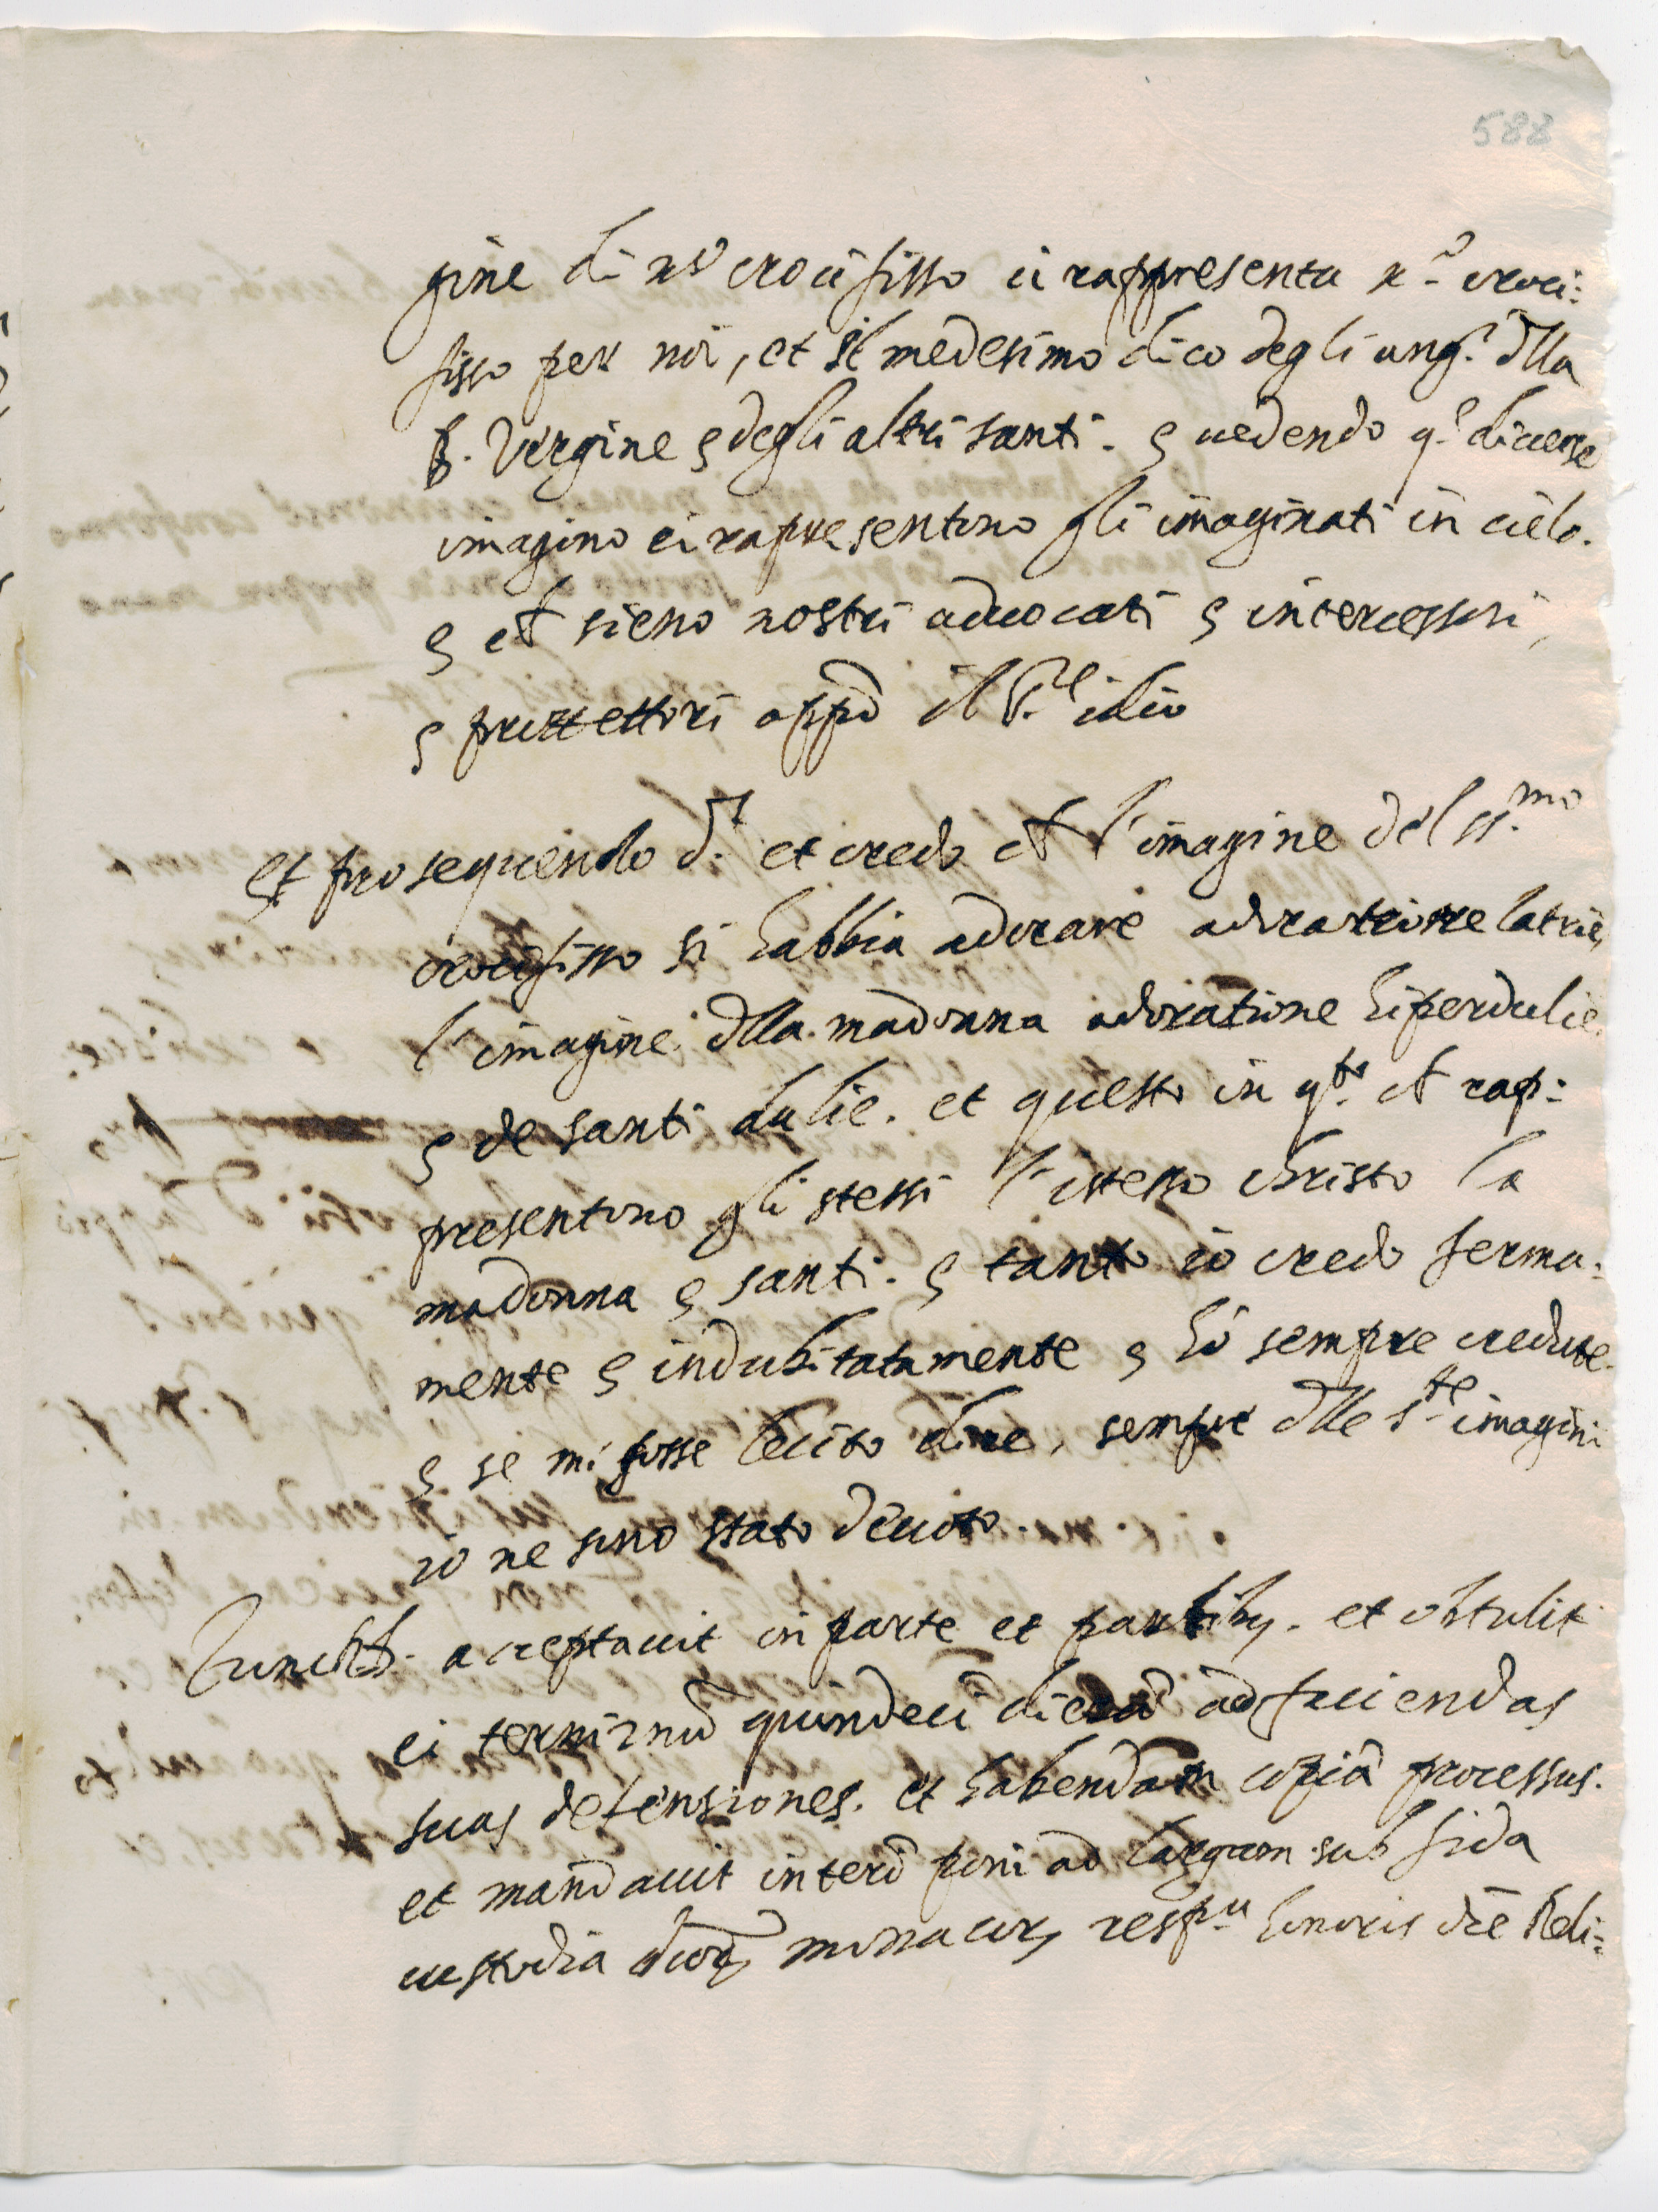 588
gine di xpo crocifisso ci rappresenta xo croci:
fisso per noi, et il medesimo dico degli ang.i dlla
B. Vergine e degli altri santi. e vedendo q.e diverse
imagino ci rapresentono gli imaginati in cielo.
e ch sieno nostri advocati e intercessori,
e prottettori appo il S.re idio
Et prosequendo d.t et credo ch l'imagine del ss.mo
crocifisso si habbia adorare adoratione latrie,
l'imagine dlla madonna adoratione hiperdulie.
e de santi dulie. et questo in q.to ch rap:
presentono gli stessi l'istesso christo la
madonna e santi. e tanto io credo ferma:
mente e indubitatamente e hò sempre credute.
e se mi fosse lecito dire, sempre dlle s.te imagini
io ne sono stato devoto.
Tunc acceptavit in parte et partibus. et obtulit
ei terminũ quindeci dierũ ad faciendas
suas defensiones. et habendam copiã processus.
et mandavit interĩ poni ad largam sub fida
custodia monacor, resp.u honoris dc̃e Reli: